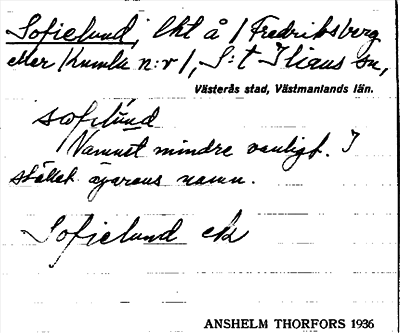 Sofielund, lht å / Fredriksberg
eller Kumla n:r /, S:t Ilians sn,
Västerås stad, Västmanlands län.
sωfilúnd
Namnet mindre vanligt. I
stället ägarens namn.
Sofielund ek
ANSHELM THORFORS 1936